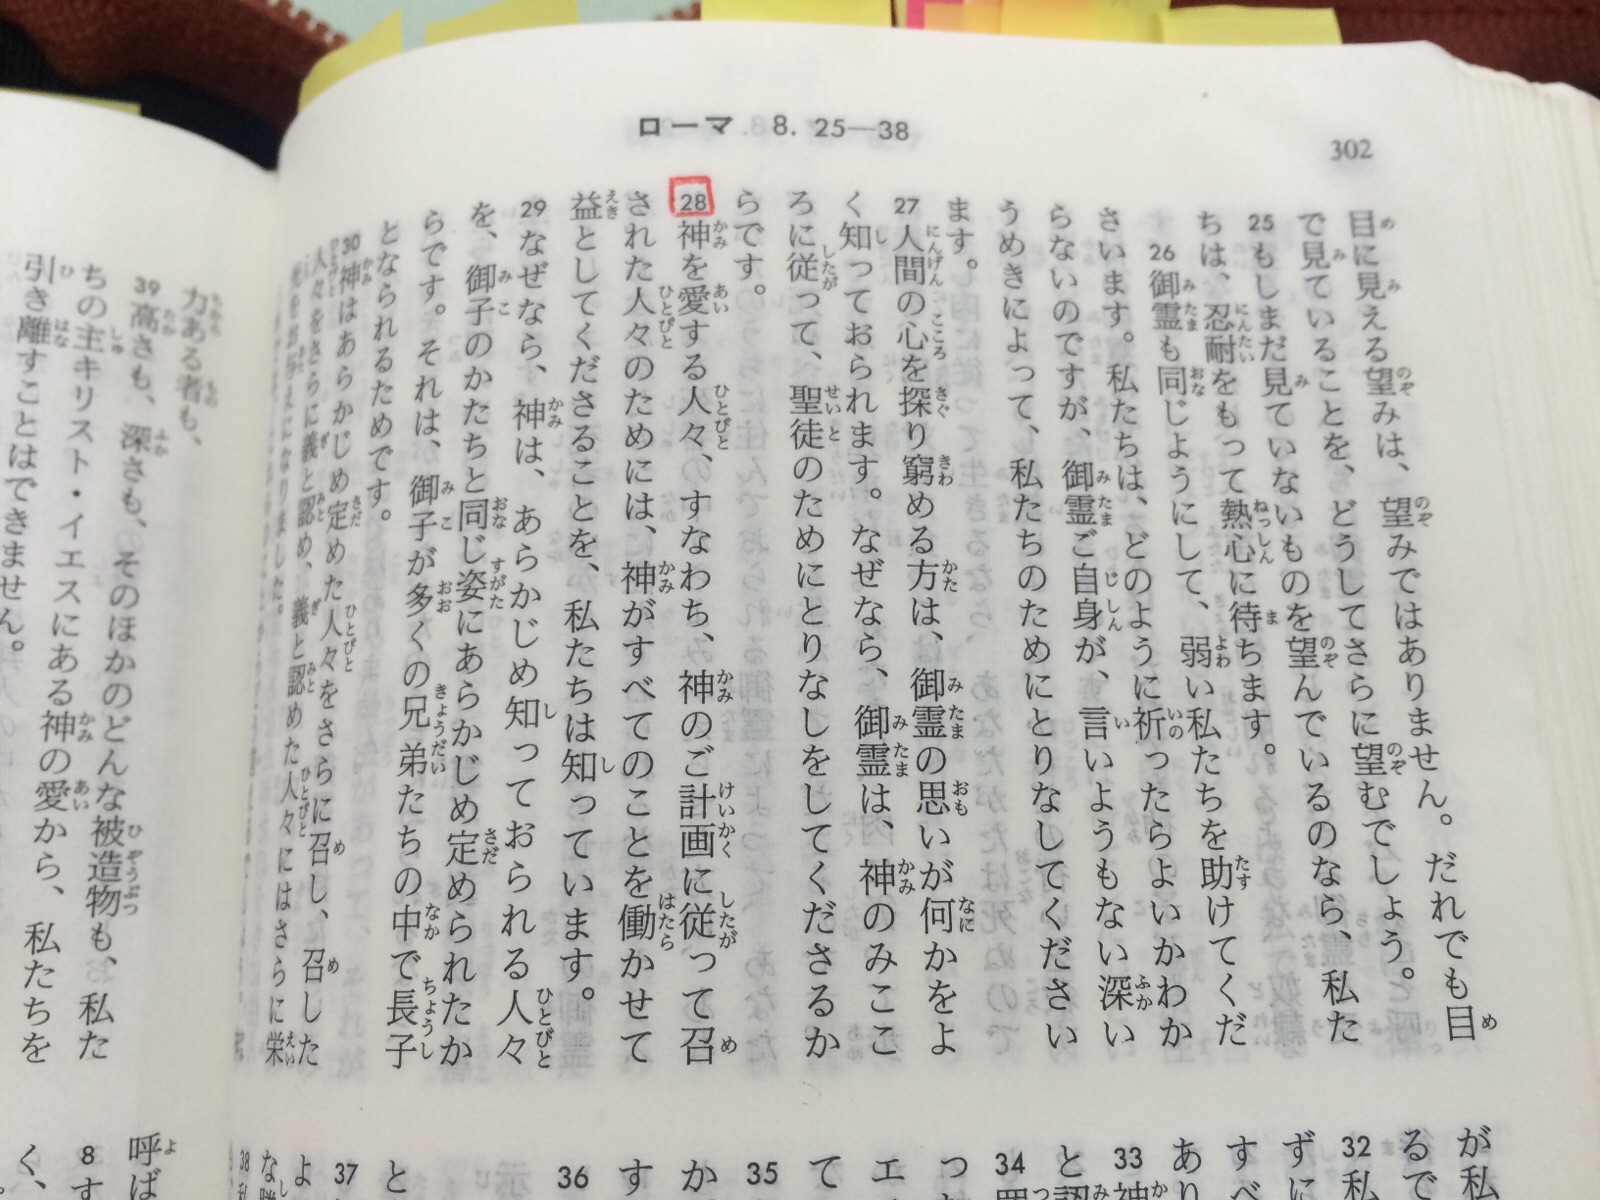 ローマ 8. 25―38
302
目に見える望みは、望みではありません。だれでも目
で見ていることを、どうしてさらに望むでしょう。
25もしまだ見ていないものを望んでいるのなら、私た
ちは、忍耐をもって熱心に待ちます。
26御霊も同じようにして、弱い私たちを助けてくだ
さいます。私たちは、どのように祈ったらよいかわか
らないのですが、御霊ご自身が、言いようもない深い
うめきによって、私たちのためにとりなしてください
ます。
27人間の心を探り窮める方は、御霊の思いが何かをよ
く知っておられます。なぜなら、御霊は、神のみここ
ろに従って、聖徒のためにとりなしをしてくださるか
らです。
28神を愛する人々、すなわち、神のご計画に従って召
された人々のためには、神がすべてのことを働かせて
益としてくださることを、私たちは知っています。
29なぜなら、神は、あらかじめ知っておられる人々
を、御子のかたちと同じ姿にあらかじめ定められたか
らです。それは、御子が多くの兄弟たちの中で長子
となられるためです。
30神はあらかじめ定めた人々をさらに召し、召した
人々をさらに義と認め、義と認めた人々にはさらに栄
光をお与えになりました。
が私
るで
32私
ずに
すべ
あり
33神
と認
34罪
つ
エ
て
35
か
す
36
と
37
よ
な
38私
力ある者も、
39高さも、深さも、そのほかのどんな被造物も、私た
ちの主キリスト・イエスにある神の愛から、私たちを
引き離すことはできません。
呼ば
8す
く、